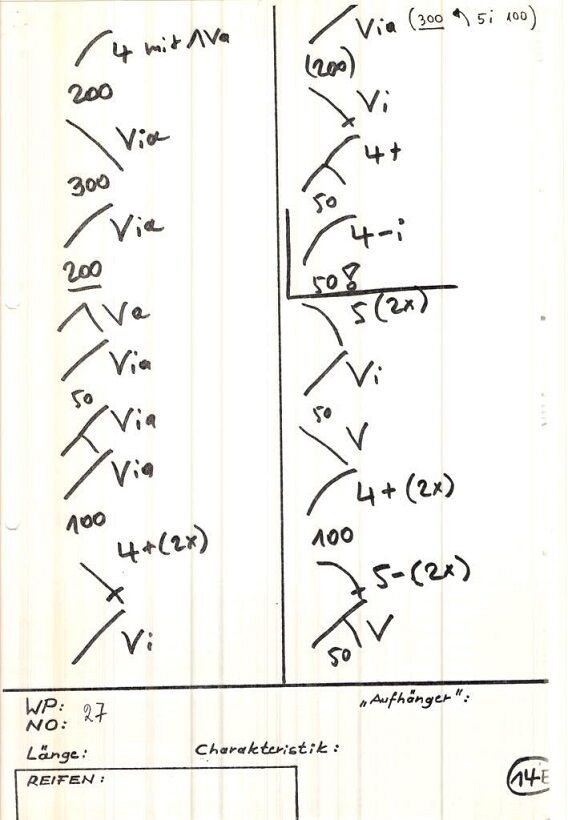 4 mit ΛVa
200
Via
300
Via
200
Va
Via
50
Via
Via
100
4+(2x)
Vi
Via (300 5i 100)
(200)
Vi
4+
50
4-i
50!
5(2x)
Vi
50
V
4+(2x)
100
5-(2x)
V
50
WP:
NO: 27
„Aufhänger":
Länge: Charakteristik:
REIFEN:
14E